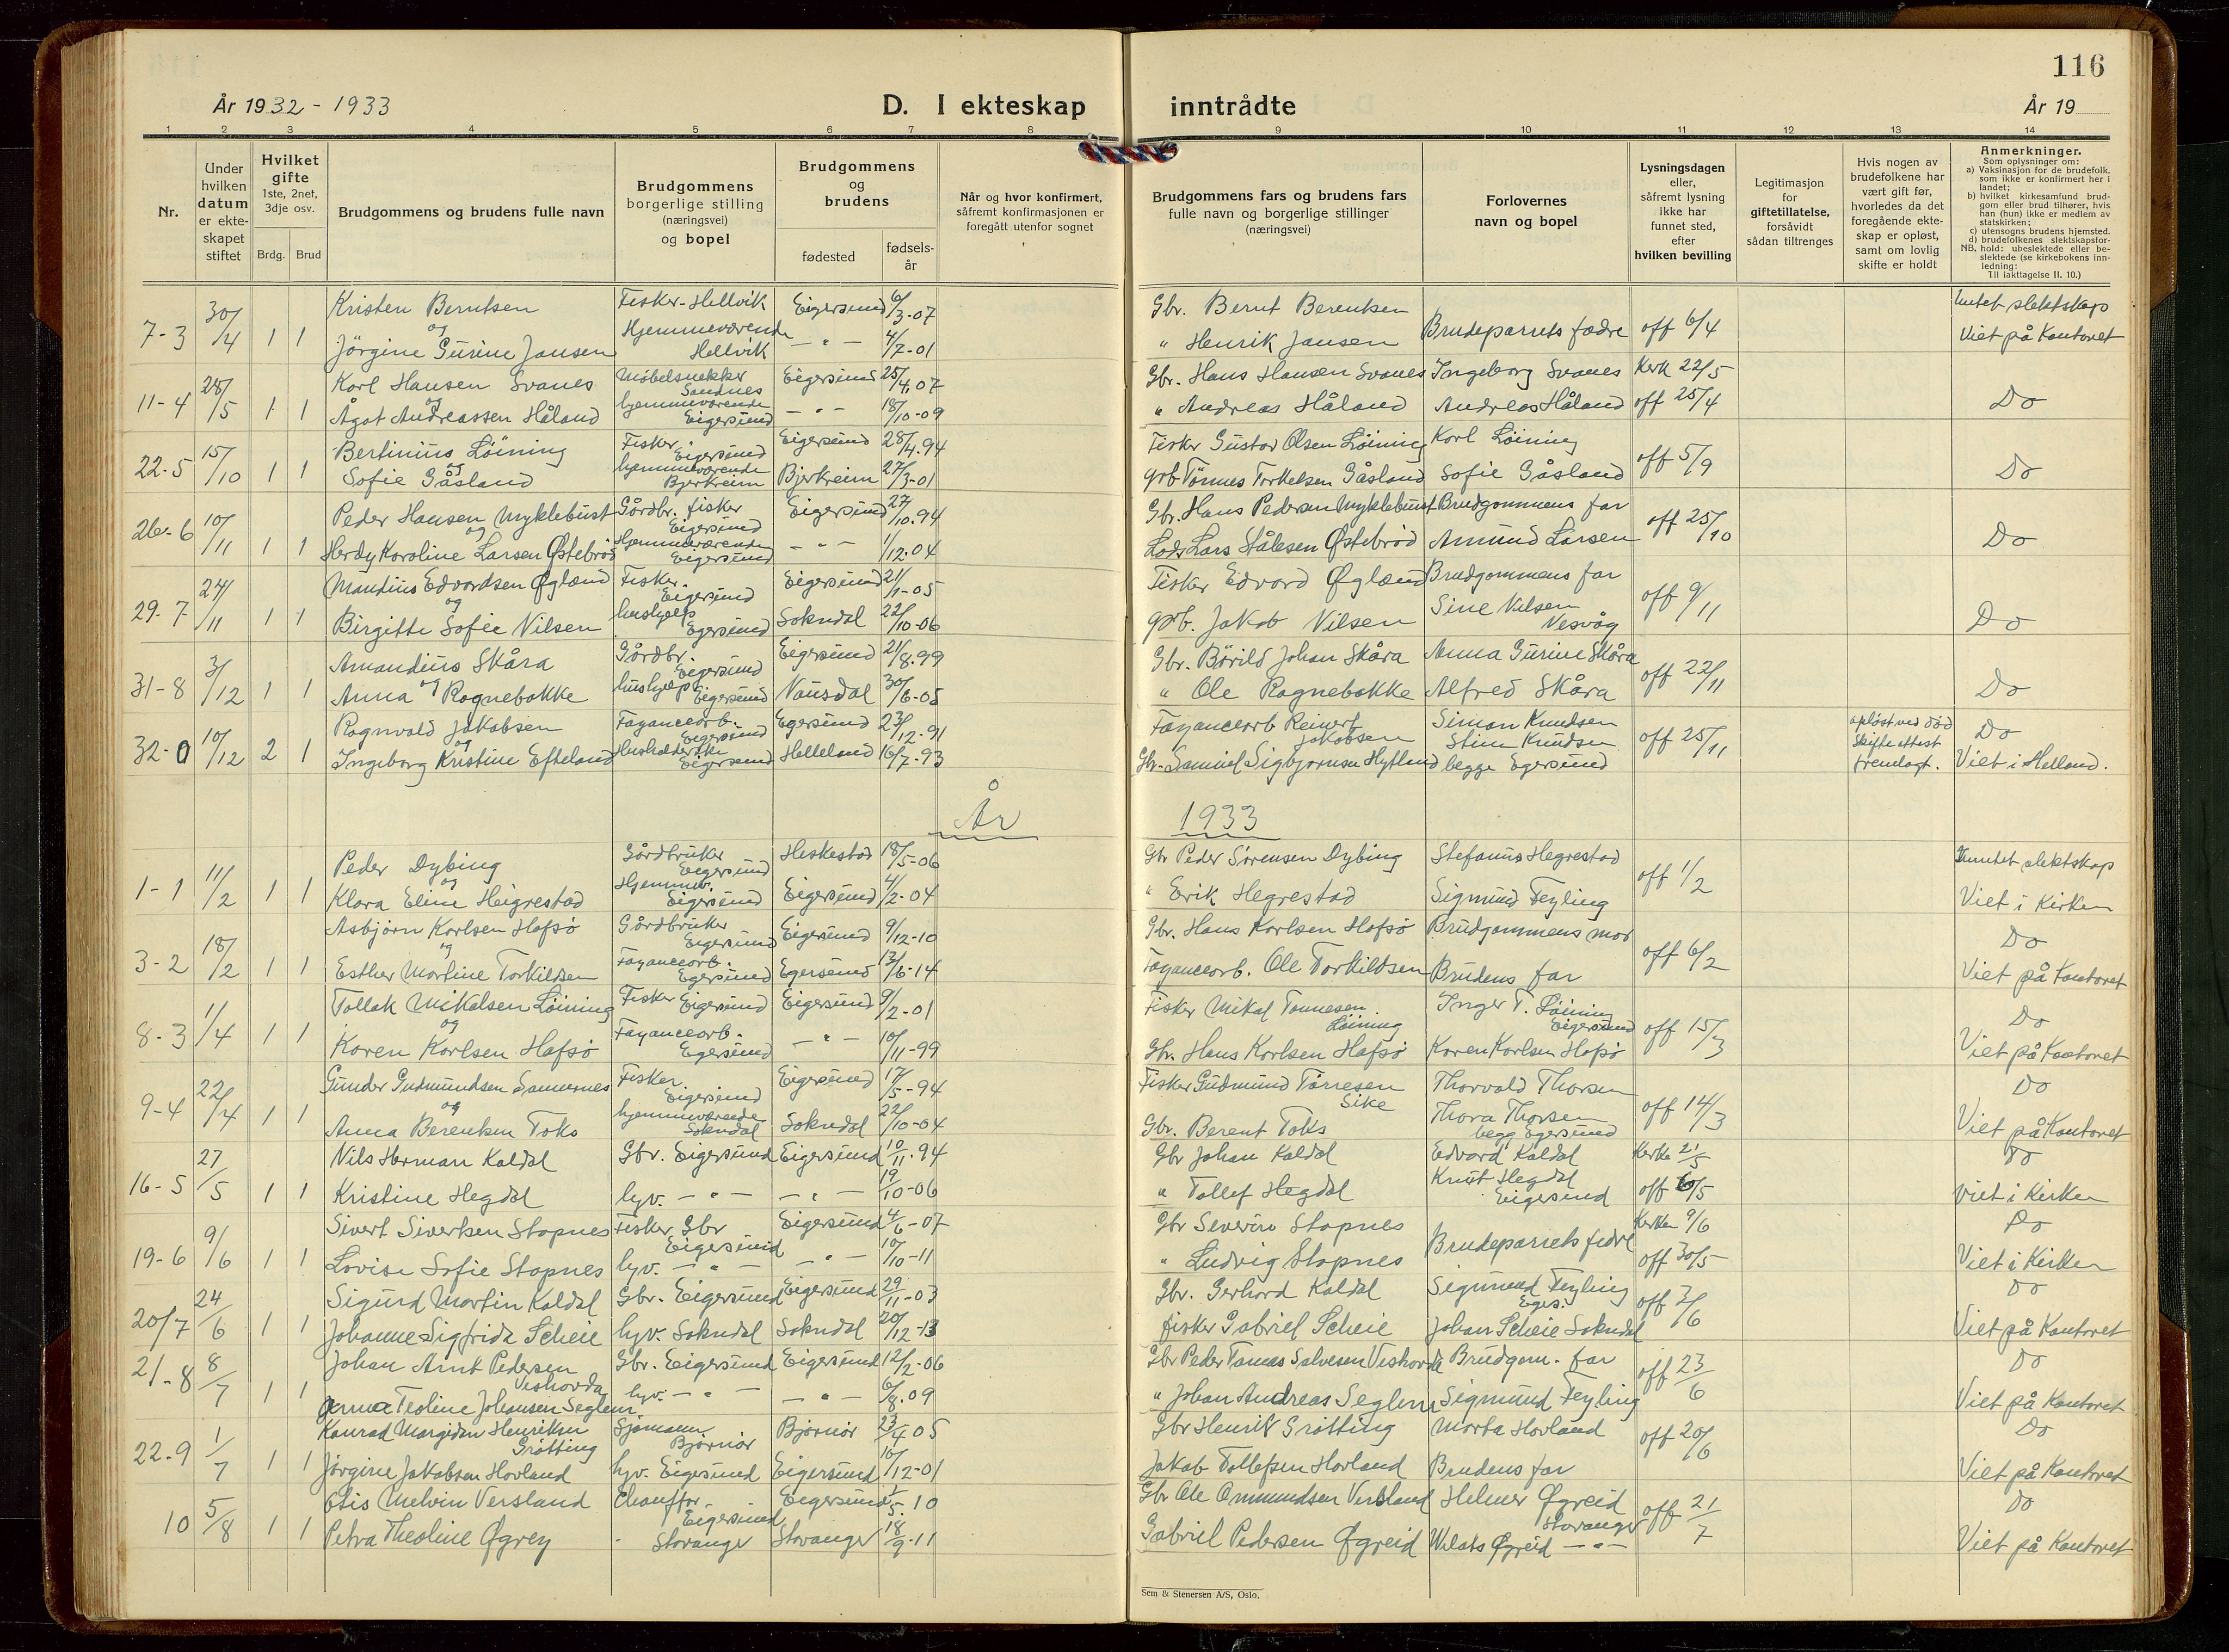 116
År 1932 - 1933
D. I ekteskap inntrådte
År 19
1 2 3 4 5 6 7 8 9 10 11 12 13 14
Nr.
Under hvilken datum er ekteskapet stiftet
Hvilket gifte 1ste, 2net, 3dje osv.
Brdg. Brud
Brudgommens og brudens fulle navn
Brudgommens borgerlige stilling (næringsvei) og bopel
Brudgommens og brudens
fødested
fødsels-år
Når og hvor konfirmert, såfremt konfirmasjonen er foregått utenfor sognet
Brudgommens fars og brudens fars fulle navn og borgerlige stillinger (næringsvei)
Forlovernes navn og bopel
Lysningsdagen eller, såfremt lysning ikke har funnet sted, efter hvilken bevilling
Legitimasjon for giftetillatelse, forsåvidt sådan tiltrenges
Hvis nogen av brudefolkene har vært gift før, hvorledes da det foregående ekteskap er opløst, samt om lovlig skifte er holdt
Anmerkninger.
Som oplysninger om:
a) Vaksinasjon for de brudefolk, som ikke er konfirmert her i landet;
b) hvilket kirkesamfund brudgom eller brud tilhører, hvis han (hun) ikke er medlem av statskirken;
c) utensogns brudens hjemsted.
d) brudefolkenes slektskapsforhold: ubeslektede eller beslektede (se kirkebokens innledning:
NB. Til iakttagelse II. 10.)
7-3 30/4 1 1 Kristen Berntsen Fisker-Hellvik Eigersund 6/3-07 Gbr. Bernt Berentsen Brudeparrets fædre off 6/4 Intet slektskap
og
Jörgine Gurine Jansen Hjemmeværende Hellvik - " - 4/7-01 " Henrik Jansen Viet på Kontoret
11-4 28/5 1 1 Karl Hansen Svanes Møbelsnekker Sandnes Eigersund 25/4.07 Gbr. Hans Hansen Svanes Ingeborg Svanes Kerk 22/5
og
Ågot Andreassen Håland hjemmeværende Eigersund - " - 18/10-09 " Andreas Håland Andreas Håland off 25/4 Do
22-5 15/10 1 1 Bertinius Löining Fisker. Eigersund Eigersund 28/4.94 Fisker Gustav Olsen Löining Karl Löining off 5/9
og
Sofie Gåsland hjemmeværende Bjerkreim Bjerkreim 27/3-01 grb Tönnes Torkelsen Gåsland Sofie Gåsland Do
26-6 10/11 1 1 Peder Hansen Myklebust Gårdbr. fisker Eigersund Eigersund 27/10.94 Gbr. Hans Pedersen Myklebust Brudgommens far off 25/10
og
Herdy Karoline Larsen Østebrød Hjemmeværende Eigersund - " - 1/12.04 Lods Lars Stålesen Østebrød Amund Larsen Do
29-7 24/11 1 1 Mandius Edvardsen Øglænd Fisker. Eigersund Eigersund 21/1-05 Fisker Edvard Øglænd Brudgommens far off 9/11
og
Birgitte Sofie Nilsen hushjelp Egersund Sokndal 22/10-06 grb. Jakob Nilsen Sine Nilsen Vesvåg Do
31-8 3/12 1 1 Amandius Skåra Gårdbr. Eigersund Eigersund 21/8.99 Gbr. Börild Johan Skåra Anna Gurine Skåra off 22/11
og
Anna Rognebakke hushjelp Eigersund Vansdal 30/6-05 " Ole Rognebakke Alfred Skåra Do
32-0 10/12 2 1 Ragnvald Jakobsen Fayancearb. Eigersund Egersund 23/12-91 Fayancearb Reinert Jakobsen Simon Knudsen off 25/11 opløst ved död Do
og
Ingeborg Kristine Efteland Husholderske Eigersund Helleland 16/7-93 Gbr. Samuel Sigbjørnsen Stine Knudsen begge Egersund Skifteattest fremlagt. Viet i Helland.
År 1933
1-1 11/2 1 1 Peder Dybing Gårdbruker Eigersund Heskestad 18/5-06 Gbr Peder Sörensen Dybing Stefanus Hegrestad off 1/2 Intet slektskap
og
Klara Eline Heigrestad Hjemmev. Eigersund Eigersund 4/2-04 " Erik Hegrestad Sigmund Feyling Viet i Kirken
3-2 18/2 1 1 Asbjörn Karlsen Hafsö Gårdbruker Eigersund Eigersund 9/12-10 Gbr. Hans Karlsen Hafsö Brudgommens mor off 6/2 Do
og
Esther Martine Torkildsen Fayancearb. Egersund Egersund 13/6-14 Fayancearb. Ole Torkildsen Brudens far Viet på Kontoret
8-3 1/4 1 1 Tollak Mikalsen Löining Fisker Eigersund Eigersund 9/2-01 Fisker Mikal Tonnesen Löining Inger T. Löining Eigersund off 15/3 Do
og
Karen Karlsen Hafsö Fayancearb. Egersund - " - 10/11-99 Gbr. Hans Karlsen Hafsö Karen Karlsen Hafsö Viet på Kontoret
9-4 22/4 1 1 Gunder Gudmundsen Fisker Eigersund Eigersund 17/5-94 Fisker Gudmund Torresen Sike Thorvald Thorsen off 14/3 Do
og
Anna Berentsen Toks hjemmeværende Sokndal Sokndal 22/10-04 Gbr. Berent Toks Thora Thorsen begg Egersund Viet på Kontoret
16-5 27/5 1 1 Nils Herman Kaldal Gbr. Eigersund Eigersund 10/11.94 Gbr Johan Kaldal Edvard Kaldal Kerke 21/5 Do
Kristine Hegdal hjv. - " - - " - 19/10-06 " Tollef Hegdal Krist Hegdal Eigersund off 6/5 Viet i Kirken
19-6 9/6 1 1 Sivert Sivertsen Stapnes Fisker, Gbr Eigersund Eigersund 4/6-07 Gbr Severin Stapnes Brudeparrets fedre Kerken 9/6 Do
Lovise Sofie Stapnes hjv. - " - - " - 10/10-11 " Ludvig Stapnes off 30/5 Viet i Kirken
20/7 24/6 1 1 Sigurd Martin Kaldal Gbr. Eigersund Eigersund 29/11-03 Gbr. Gerhard Kaldal Sigmund Feyling Egers. off 3/6 Do
Johanne Sigfrida Scheie hjv. Sokndal Sokndal 20/12-13 fisker Gabriel Scheie Johan Scheie Sokndal Viet på Kontoret
21-8 8/7 1 1 Johan Arnt Pedersen Veshovda Gbr. Eigersund Eigersund 12/2-06 Gbr Peder Tomas Salvesen Veshovda Brudgom. far off 23/6 Do
Anna Teoline Johansen Seglem hjv. - " - - " - 6/8.09 " Johan Andreas Seglem Sigmund Feyling Viet på Kontoret
22.9 1/7 1 1 Konrad Margido Henriksen Grötting Sjömann. Björnör Björnör 23/4 05 Gbr Henrik Grötting Marta Hovland off 20/6 Do
Jörgine Jakobsen Hovland hjv. Eigersund Eigersund 10/12-01 Jakob Tollefsen Hovland Brudens far Viet på Kontoret
10 5/8 1 1 Otis Melvin Versland Chauffør. Eigersund Eigersund 1/5.10 Gbr Ole Ommundsen Versland Helmer Øgreid Stavanger off 21/7 Do
Petra Theoline Øgrey Stavanger Stavanger 18/9-11 Gabriel Pedersen Øgreid Øgreid - " - Viet på Kontoret
Sem & Stenersen A/S, Oslo.